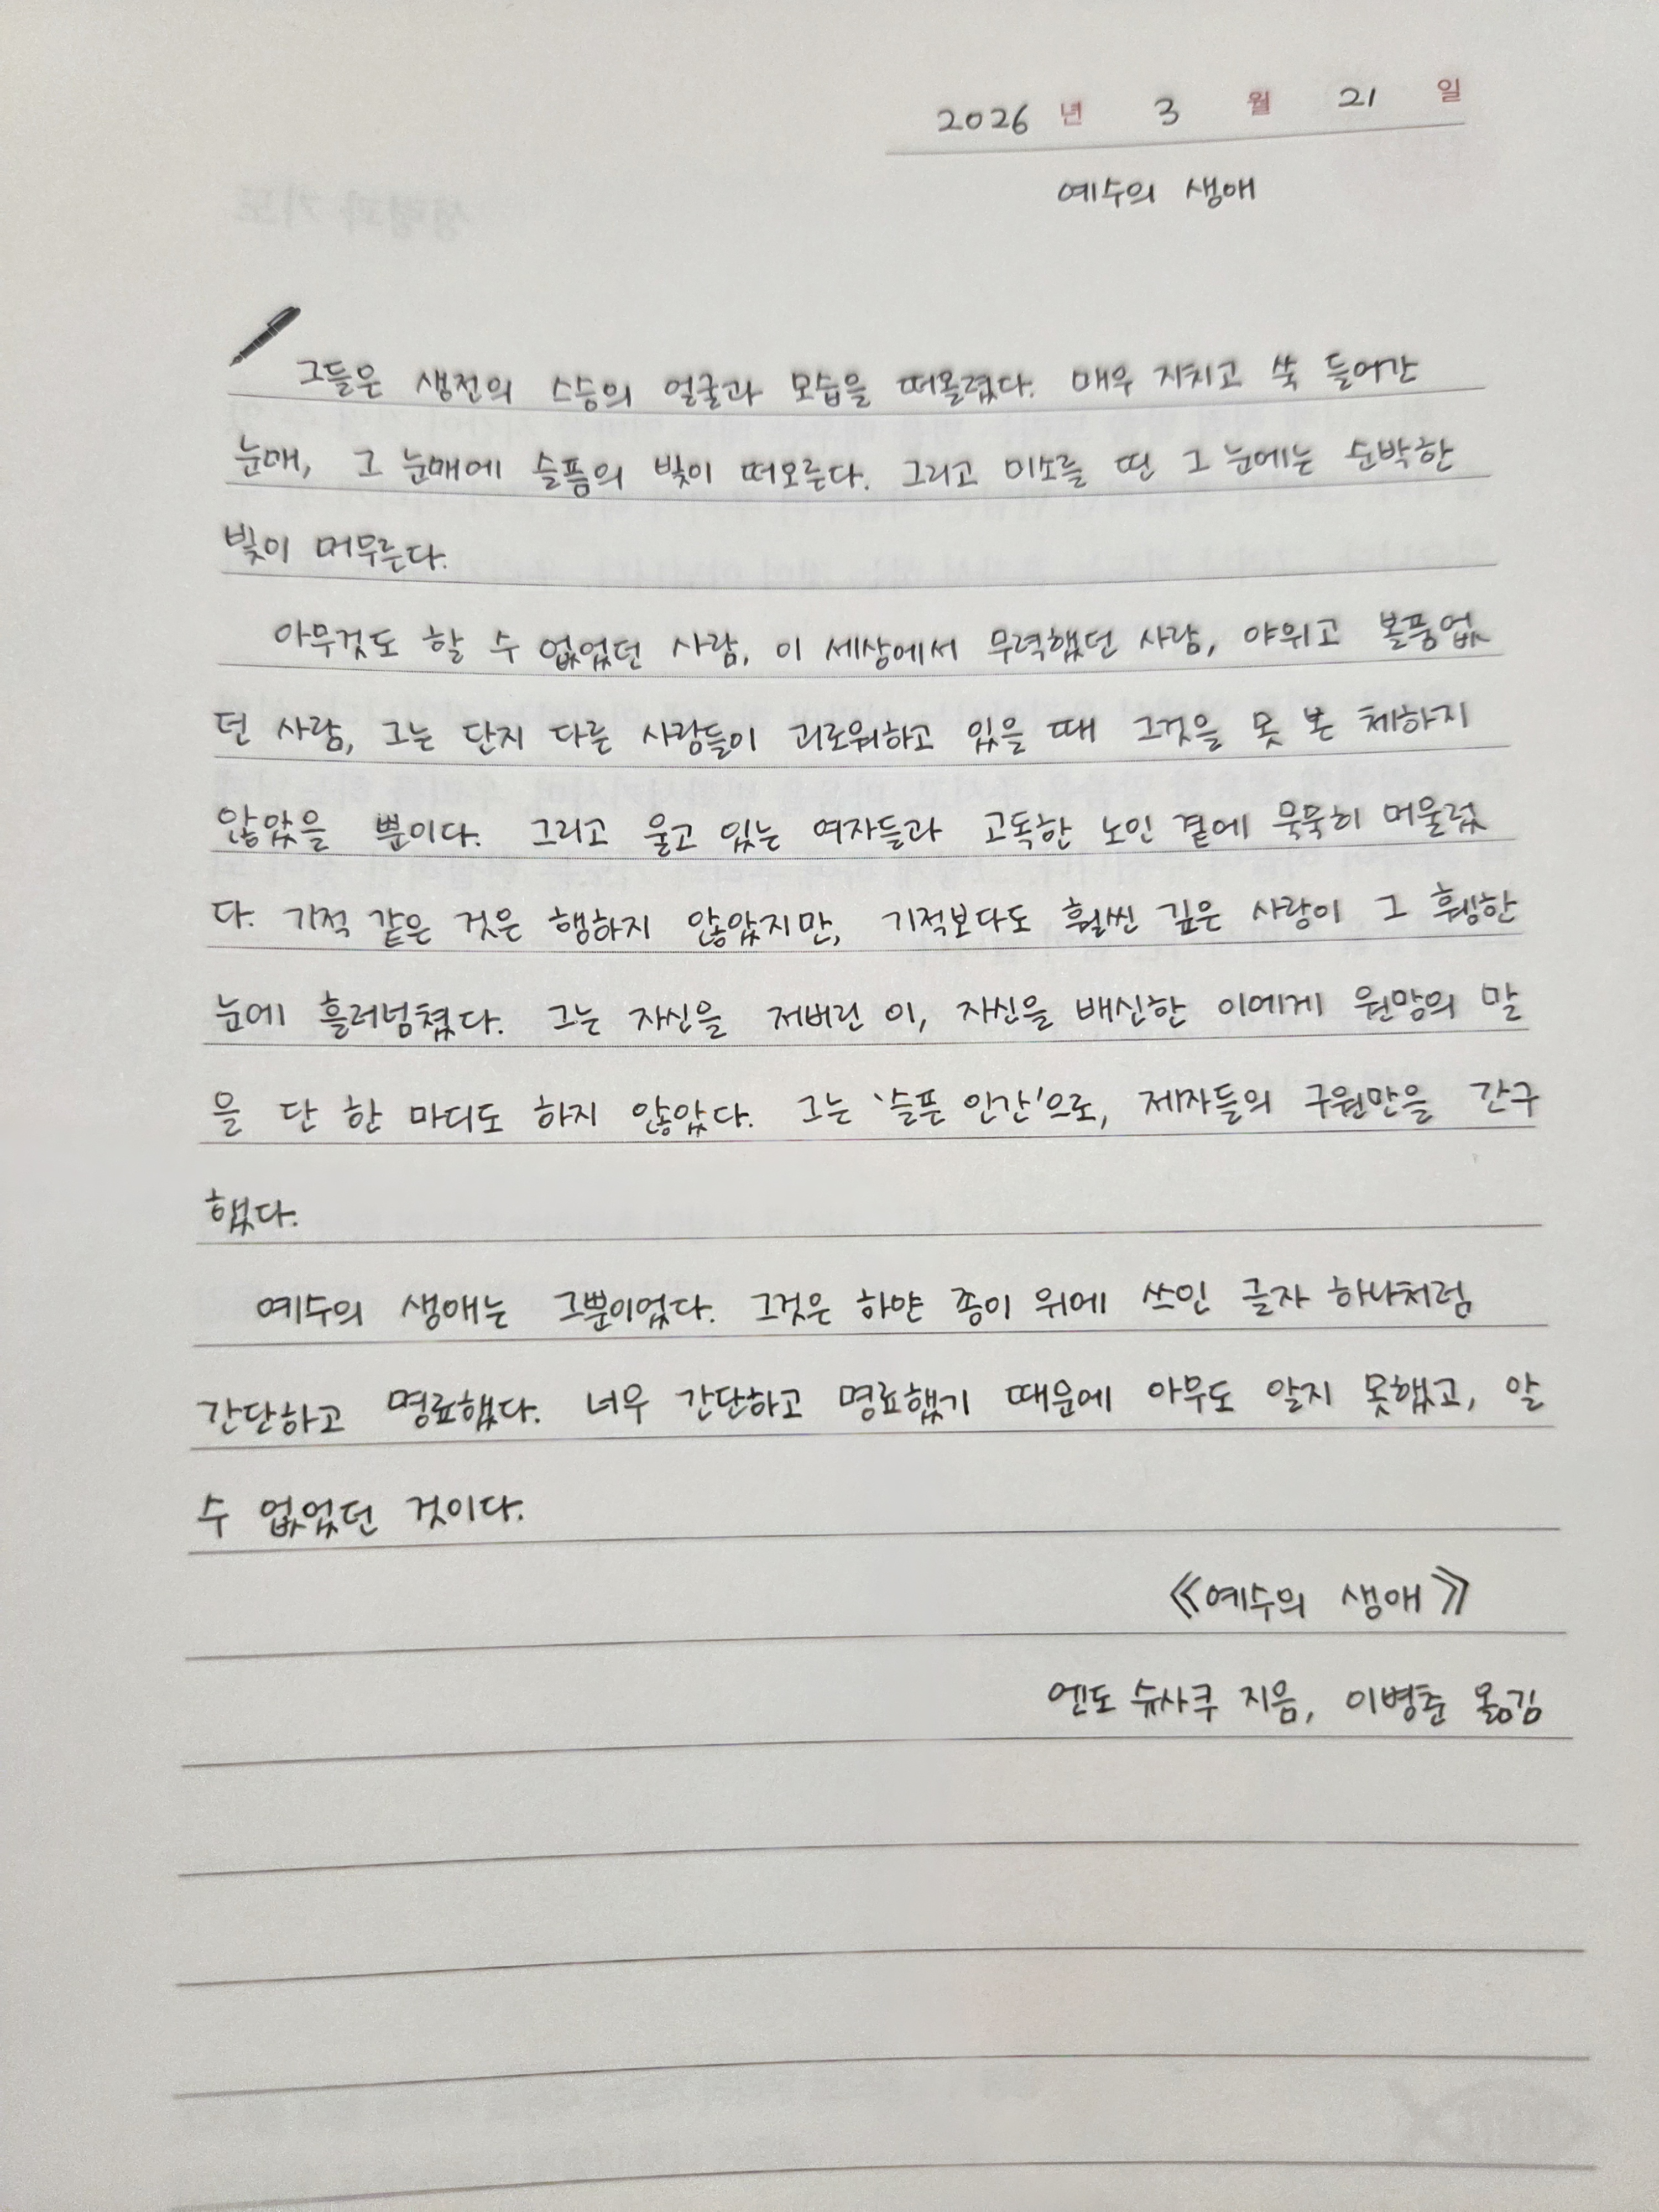 2026 년 3 월 21 일
예수의 생애
그들은 생전의 스승의 얼굴과 모습을 떠올렸다. 매우 지치고 쑥 들어간
눈매, 그 눈매에 슬픔의 빛이 떠오른다. 그리고 미소를 띤 그 눈에는 순박한
빛이 머무른다.
아무것도 할 수 없었던 사람, 이 세상에서 무력했던 사람, 야위고 볼품없
던 사람, 그는 단지 다른 사람들이 괴로워하고 있을 때 그것을 못 본 체하지
않았을 뿐이다. 그리고 울고 있는 여자들과 고독한 노인 곁에 묵묵히 머물렀
다. 기적 같은 것은 행하지 않았지만, 기적보다도 훨씬 깊은 사랑이 그 휑한
눈에 흘러넘쳤다. 그는 자신을 저버린 이, 자신을 배신한 이에게 원망의 말
을 단 한 마디도 하지 않았다. 그는 '슬픈 인간'으로, 제자들의 구원만을 간구
했다.
예수의 생애는 그뿐이었다. 그것은 하얀 종이 위에 쓰인 글자 하나처럼
간단하고 명료했다. 너무 간단하고 명료했기 때문에 아무도 알지 못했고, 알
수 없었던 것이다.
《예수의 생애》
엔도 슈사쿠 지음, 이병춘 옮김